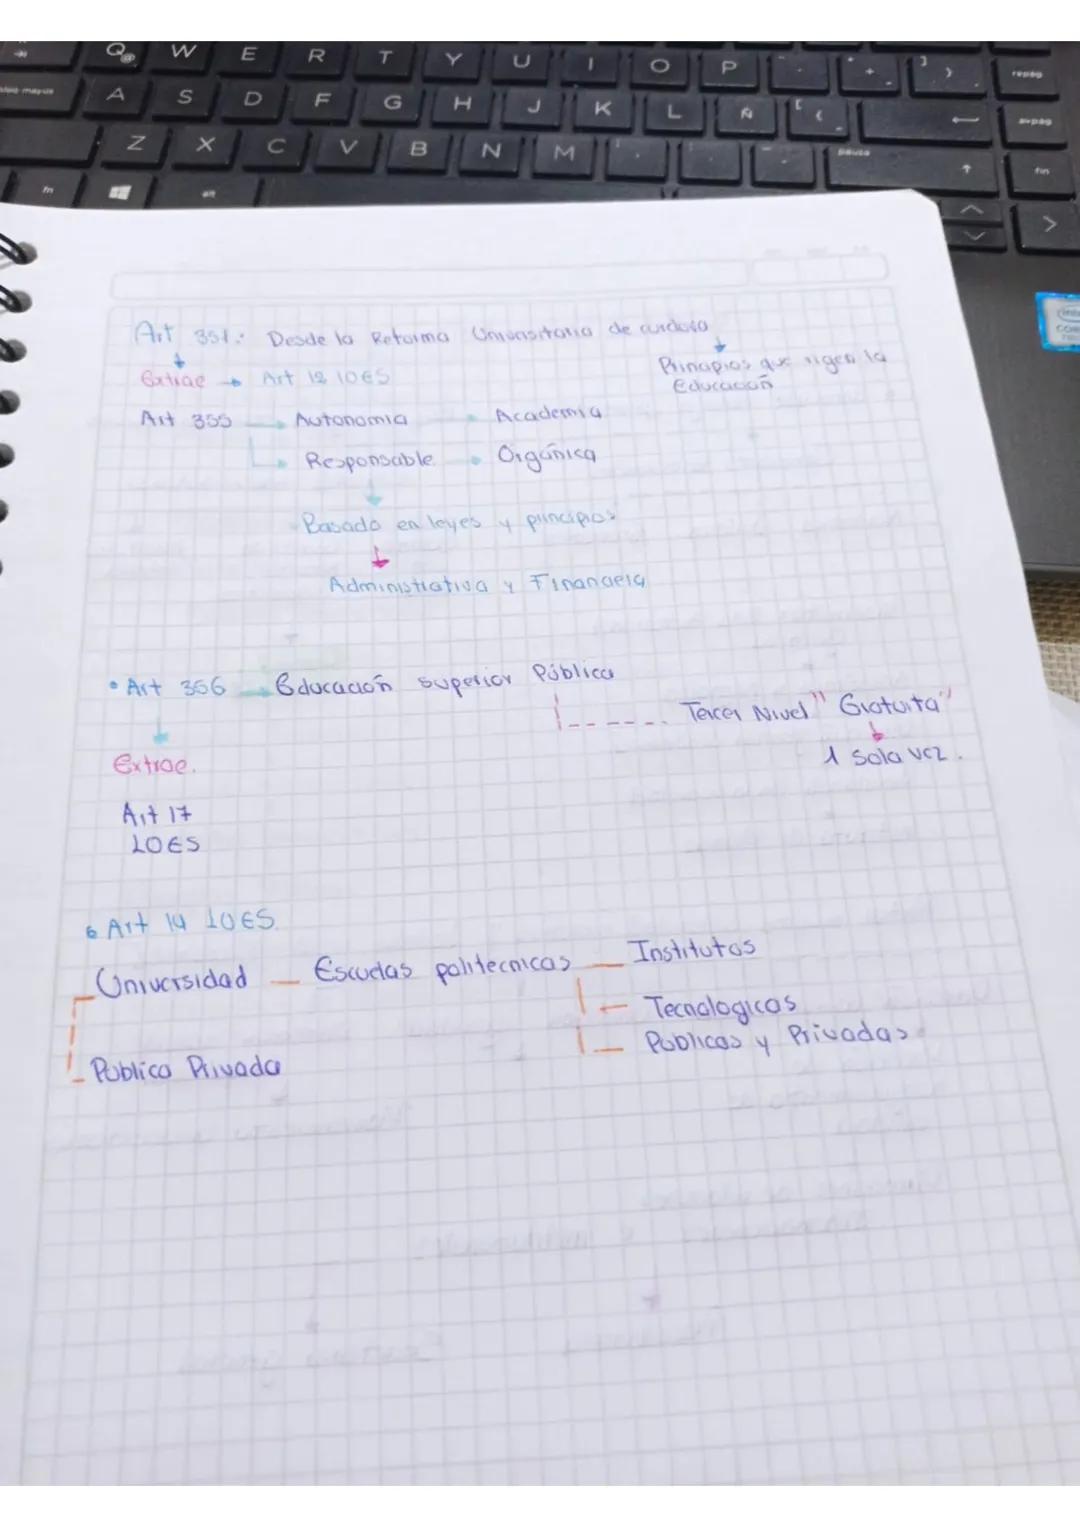 Q @ W E R T Y U I O P
repág
bloq mayús A S D F G H J K L Ñ
avpág
Z X C V B N M
pausa
fin
fn alt
Art 351: Desde la Reforma Universitaria de cordova
Principios que rigen la
Educación
Extrae Art 12 LOES
Art 355 Autonomia Academia
Responsable Orgánica
Basado en leyes y principios
Administrativa y Financiera
• Art 356 Educación superior Pública
Tercer Nivel "Gratuita"
1 sola vez.
Extrae.
Art 17
LOES
Art 14 LOES.
Universidad — Escuelas politecnicas — Institutos
Tecnologicos
Publicas y Privadas
Publica Privada